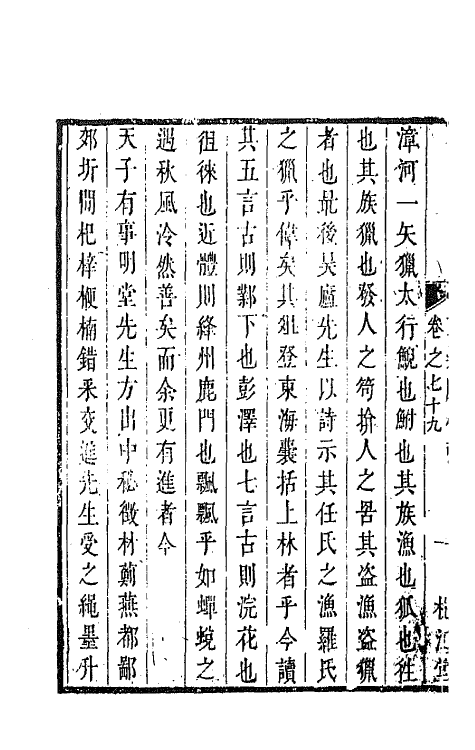 漳河一矢獵太行鯢也鮒也其族漁也狐也狌
也其族獵也發人之笱揜人之罟其盜漁盜獵
者也最後吳廬先生以詩示其任氏之漁羅氏
之獵乎偉矣其俎登東海囊括上林者乎今讀
其五言古則鄴下也彭澤也七言古則浣花也
徂徠也近體則絳州鹿門也飄飄乎如蟬蛻之
遇秋風泠然善矣而余更有進者今
天子有事明堂先生方出中秘徵材薊燕都鄙
郊圻間杞梓楩楠錯釆交進先生受之繩墨升
卷之七十九
一